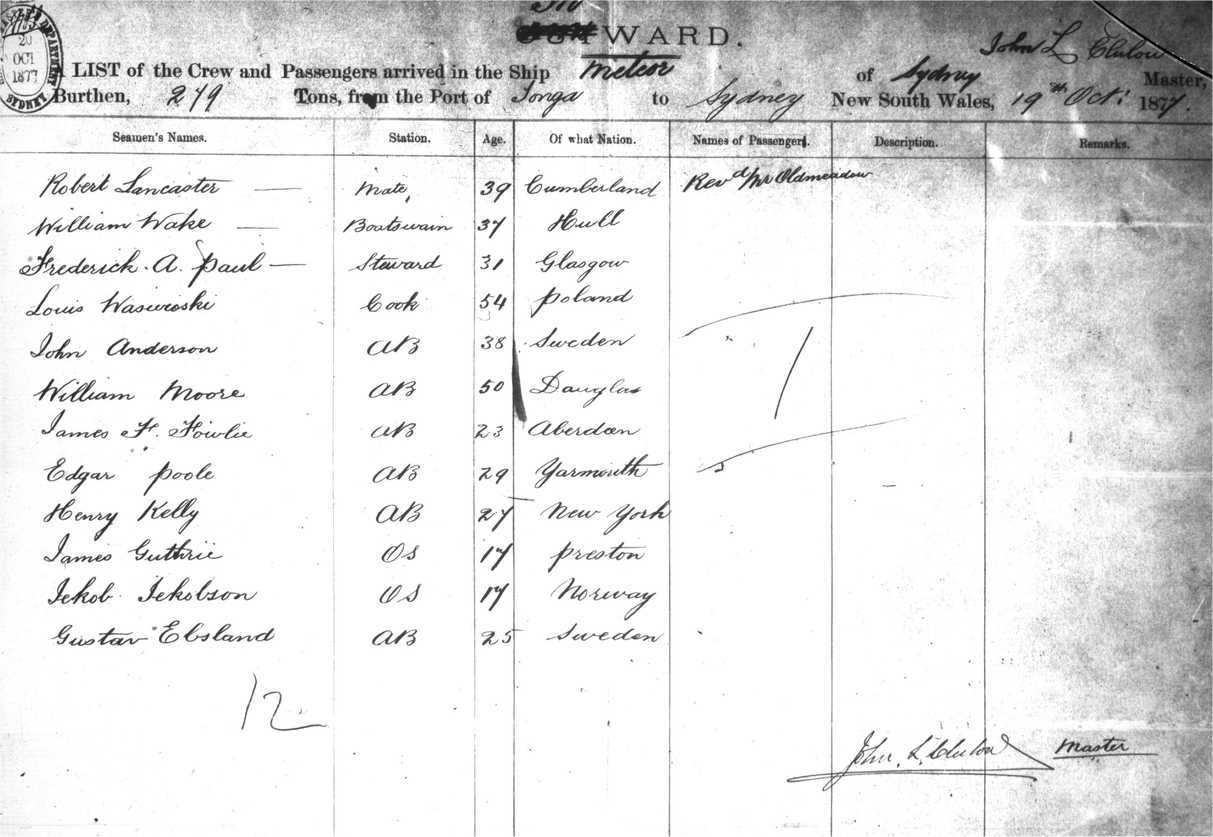 IN
OUTWARD.
CUSTOMS DEPARTMENT
20
OCT
1877
SYDNEY
John L Clulow
A LIST of the Crew and Passengers arrived in the Ship Meteor of Sydney Master,
Burthen, 279 Tons, from the Port of Tonga to Sydney New South Wales, 19th Oct: 1877.
Seamen's Names. Station. Age. Of what Nation. Names of Passengers. Description. Remarks.
Robert Lancaster — Mate 39 Cumberland Revd Mr Oldmeadow
William Wake — Boatswain 37 Hull
Frederick. A. Paul — Steward 31 Glasgow
Louis Cook 54 Poland
John Anderson AB 38 Sweden
William Moore AB 50 Douglas
James F. Fowlie AB 23 Aberdeen
Edgar Poole AB 29 Yarmouth
Henry Kelly AB 27 New York
James Guthrie OS 17 Preston
Jekob Jekobson OS 17 Norway
Gustav Ebsland AB 25 Sweden
12
John. L. Clulow Master